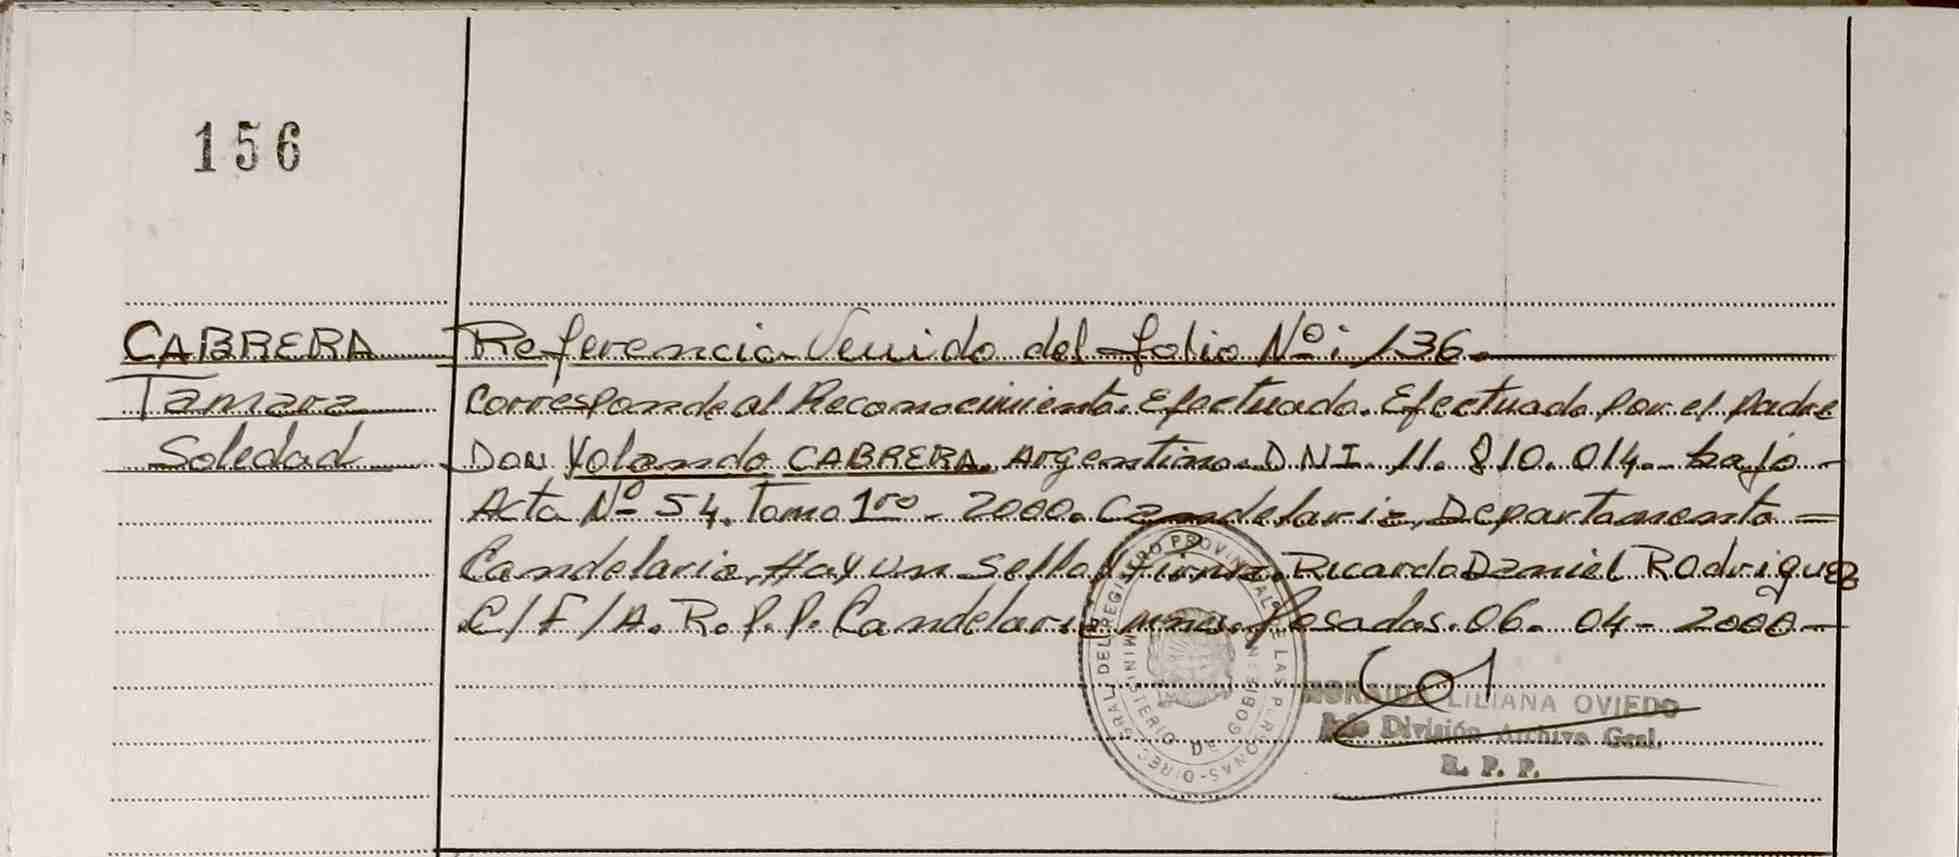 156
CABRERA
Tamara
Soledad
Referencia Venido del folio Nº: 136.
Corresponde al Reconocimiento. Efectuado. Efectuado por el padre
Don Yolando CABRERA. Argentino. DNI. 11.810.014. bajo
Acta Nº 54. Tomo 1ro - 2000. Candelaria, Departamento
Candelaria. Hay un sello y firma. Ricardo Daniel Rodriguez
C/F/A.R.P.P. Candelaria mnes. Posadas. 06. 04 - 2000 -
LILIANA OVIEDO
Jefe División Archivo Gral.
R. P. P.
MINISTERIO DE GOBIERNO